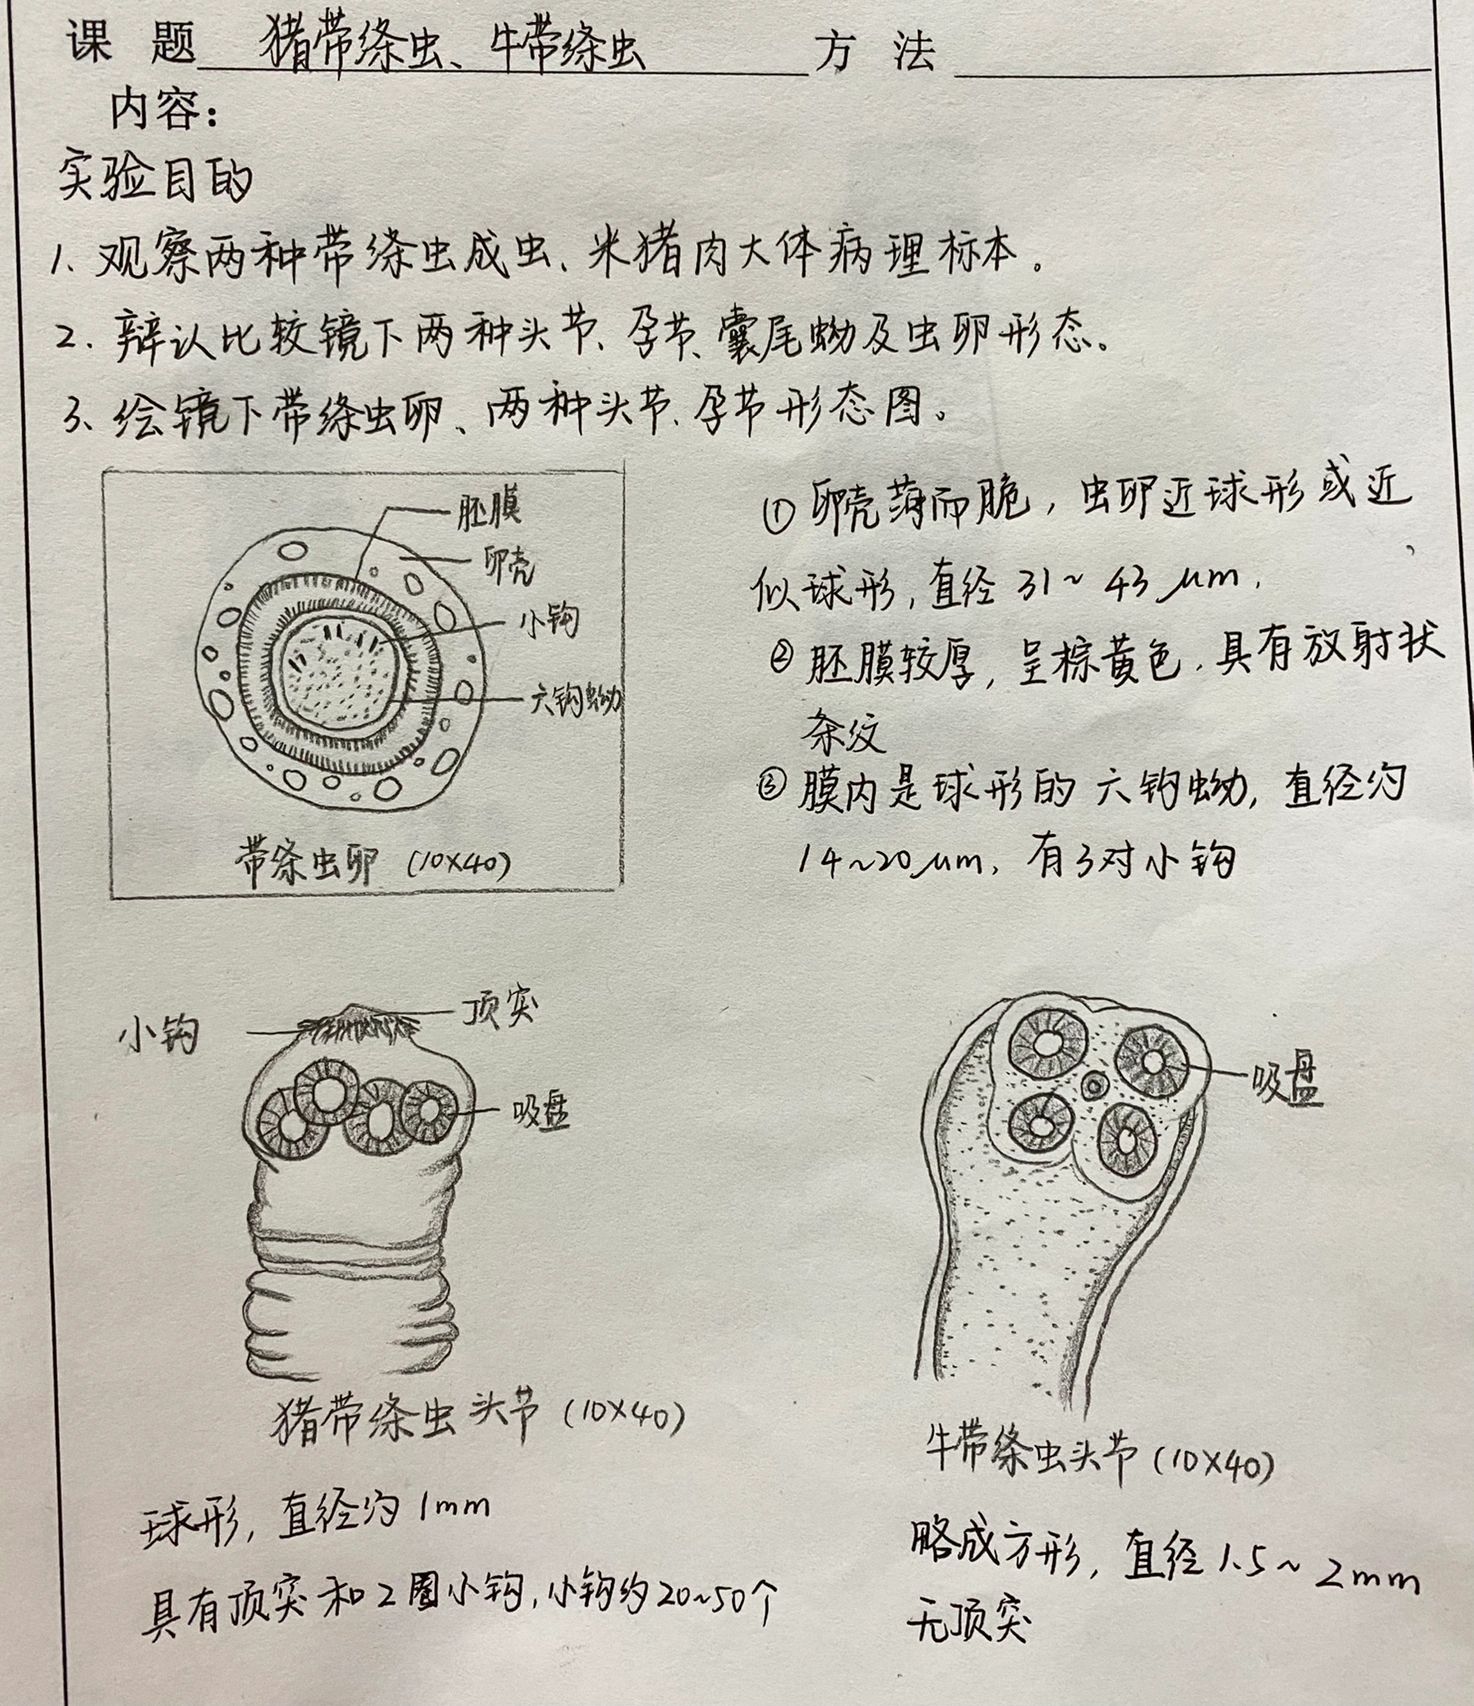 课 题 猪带绦虫、牛带绦虫 方 法
内容：
实验目的
1. 观察两种带绦虫成虫、米猪肉大体病理标本。
2. 辩认比较镜下两种头节、孕节、囊尾蚴及虫卵形态。
3、绘镜下带绦虫卵、两种头节、孕节形态图。
胚膜
卵壳
小钩
六钩蚴
带绦虫卵 (10×40)
① 卵壳薄而脆，虫卵近球形或近
似球形，直径 31~43 μm，
② 胚膜较厚，呈棕黄色，具有放射状
条纹
③ 膜内是球形的六钩蚴，直径约
14~20μm，有3对小钩
小钩
顶突
吸盘
猪带绦虫头节 (10×40)
球形，直径约 1mm
具有顶突和2圈小钩，小钩约20~50个
吸盘
牛带绦虫头节 (10×40)
略成方形，直径1.5~2mm
无顶突